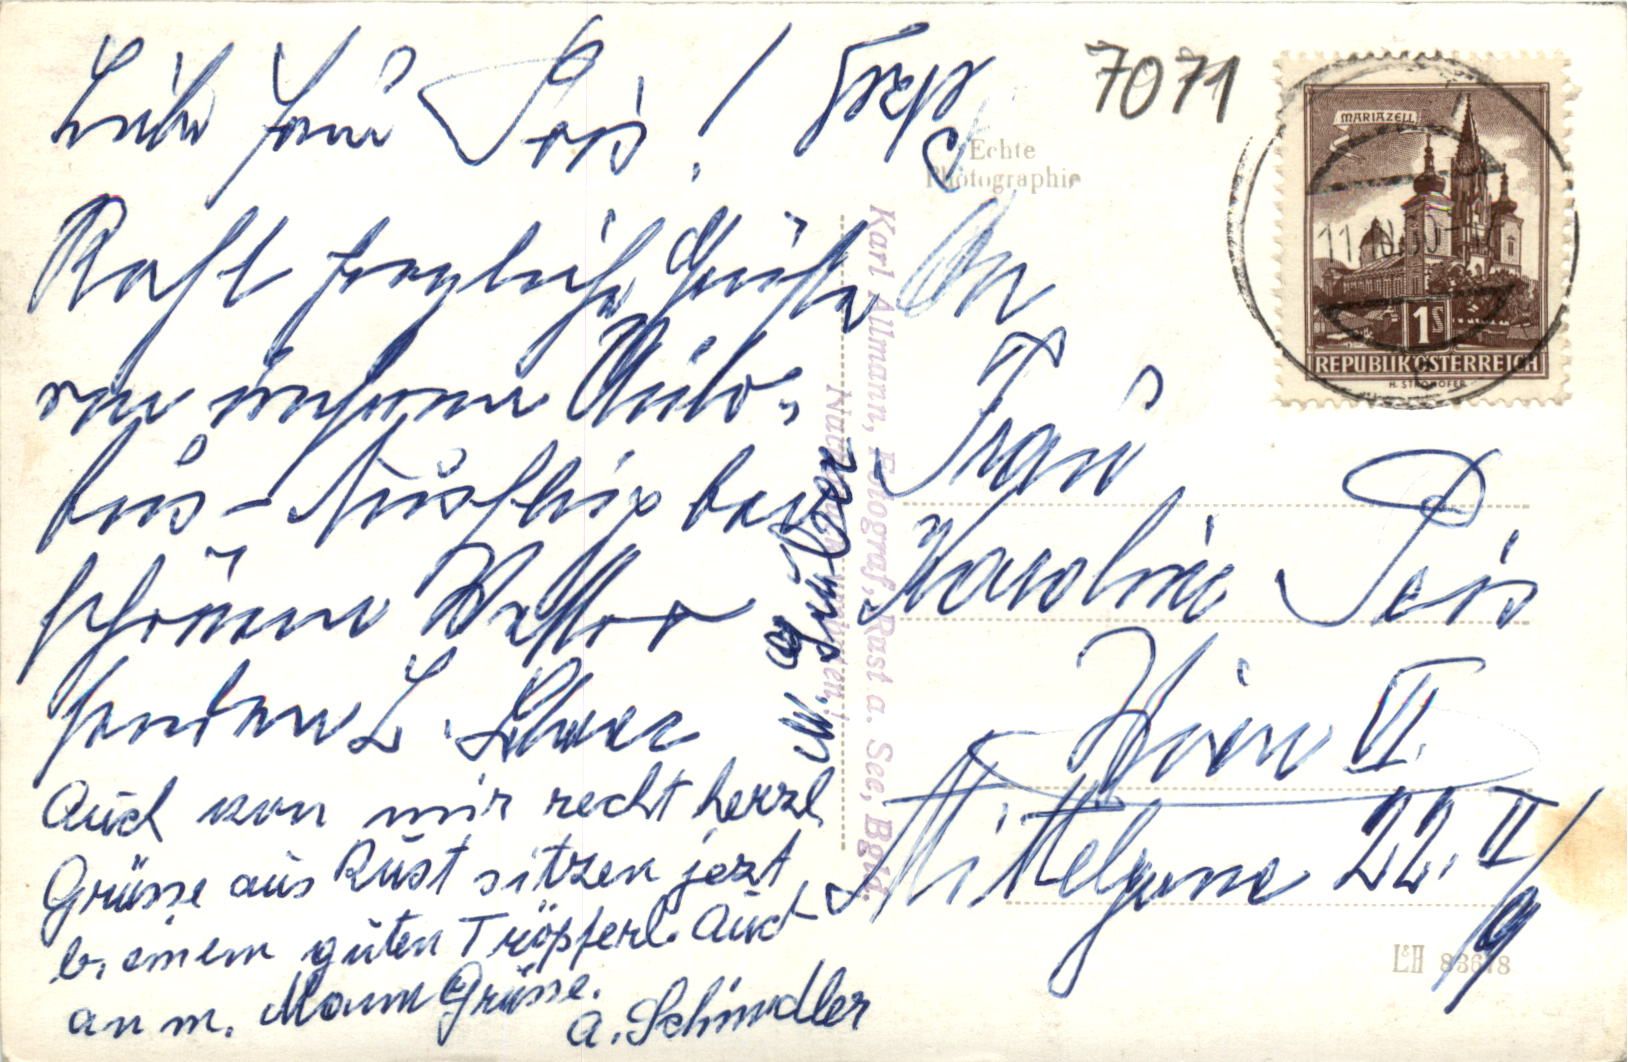 Liebe Frau Pois!
7071
Echte
Photographie
MARIAZELL
1S
REPUBLIK ÖSTERREICH
H. STROHOFER
Recht herzliche Grüße
von unserem Auto-
bus-Ausflug bei
schönem Wetter
senden L.
M. Gruber
Auch von mir recht herzl.
Grüsse aus Rust sitzen jezt
b. einem guten Tröpferl. Auch
an m. Mann Grüsse.
A. Schindler
Karl Allmann, Fotograf, Rust a. See, Bgld.
An
Frau
Karoline Pois
Wien VI.
Mittelgasse 22. II/9
L&H 83678